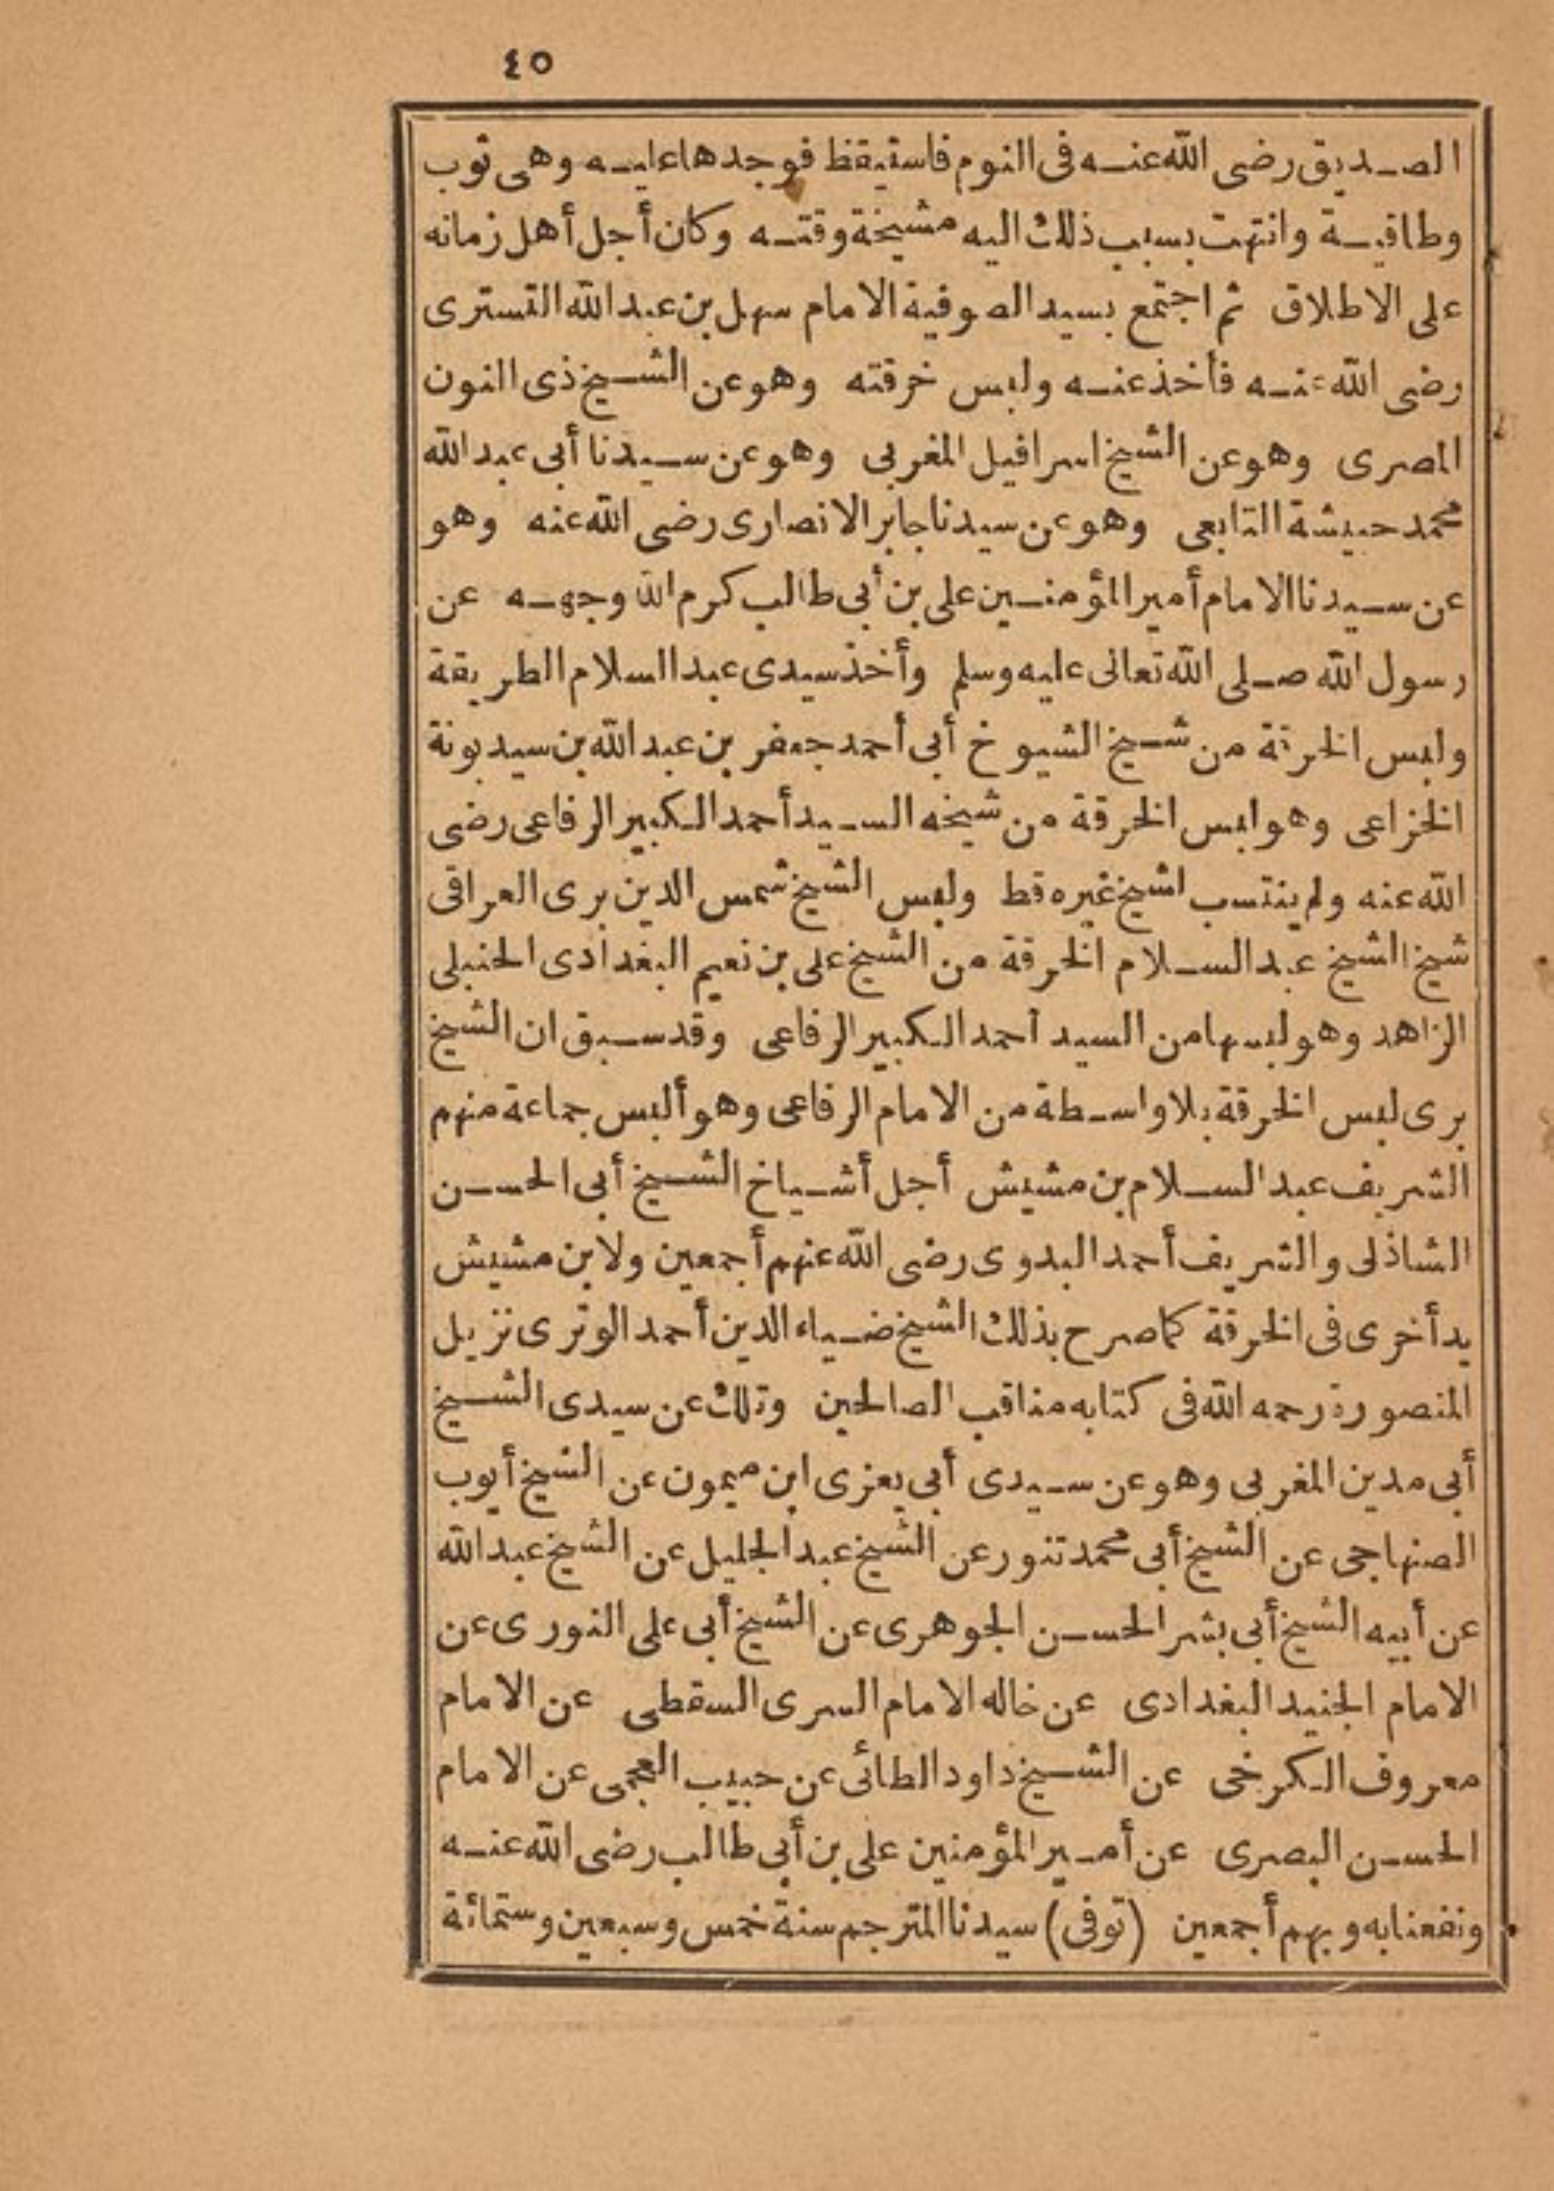 ٤٥
الصديق رضى الله عنه فى النوم فاستيقظ فوجدها عليه وهى ثوب
وطاقية وانتهت بسبب ذلك اليه مشيخة وقته وكان أجل أهل زمانه
على الاطلاق ثم اجتمع بسيد الصوفية الامام سهل بن عبد الله التسترى
رضى الله عنه فأخذ عنه ولبس خرقته وهو عن الشيخ ذى النون
المصرى وهو عن الشيخ اسرافيل المغربى وهو عن سيدنا أبى عبد الله
محمد حبيشة التابعى وهو عن سيدنا جابر الانصارى رضى الله عنه وهو
عن سيدنا الامام أمير المؤمنين على بن أبى طالب كرم الله وجهه عن
رسول الله صلى الله تعالى عليه وسلم وأخذ سيدى عبد السلام الطريقة
ولبس الخرقة من شيخ الشيوخ أبى أحمد جعفر بن عبد الله بن سيد بونة
الخزاعى وهو لبس الخرقة من شيخه السيد أحمد الكبير الرفاعى رضى
الله عنه ولم ينتسب لشيخ غيره قط ولبس الشيخ شمس الدين برى العراقى
شيخ الشيخ عبد السلام الخرقة من الشيخ على بن نعيم البغدادى الحنبلى
الزاهد وهو لبسها من السيد أحمد الكبير الرفاعى وقد سبق ان الشيخ
برى لبس الخرقة بلا واسطة من الامام الرفاعى وهو ألبس جماعة منهم
الشريف عبد السلام بن مشيش أجل أشياخ الشيخ أبى الحسن
الشاذلى والشريف أحمد البدوى رضى الله عنهم أجمعين ولابن مشيش
يد أخرى فى الخرقة كما صرح بذلك الشيخ ضياء الدين أحمد الوترى نزيل
المنصورة رحمه الله فى كتابه مناقب الصالحين وتلك عن سيدى الشيخ
أبى مدين المغربى وهو عن سيدى أبى يعزى ابن ميمون عن الشيخ أيوب
الصنهاجى عن الشيخ أبى محمد تنور عن الشيخ عبد الجليل عن الشيخ عبد الله
عن أبيه الشيخ أبى بشر الحسن الجوهرى عن الشيخ أبى على النورى عن
الامام الجنيد البغدادى عن خاله الامام السرى السقطى عن الامام
معروف الكرخى عن الشيخ داود الطائى عن حبيب العجمى عن الامام
الحسن البصرى عن أمير المؤمنين على بن أبى طالب رضى الله عنه
ونفعنا به وبهم أجمعين (توفى) سيدنا المترجم سنة خمس وسبعين وستمائة